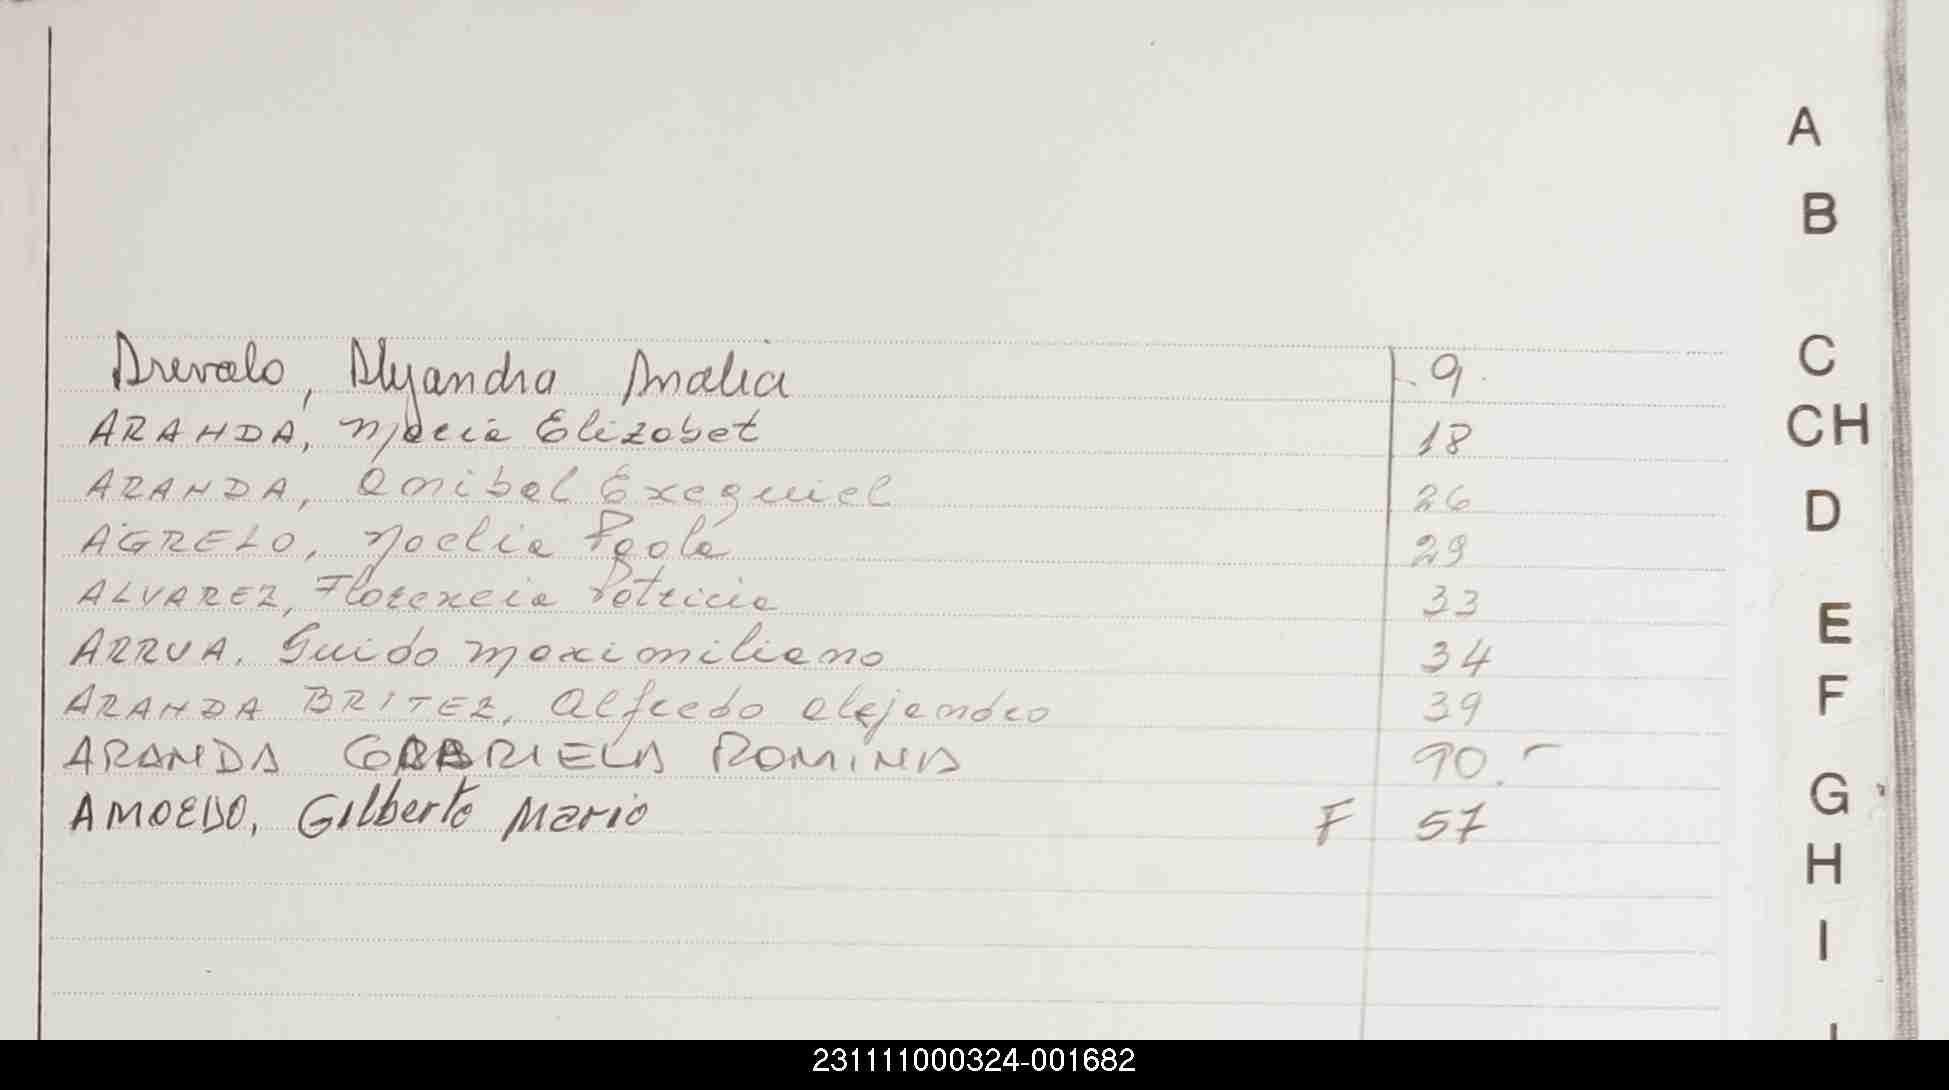 Arevalo, Alejandra Analia 9.
ARANDA, Maria Elizabet 18
ARANDA, Anibal Exequiel 26
AGRELO, Noelia Paola 29
ALVAREZ, Florencia Patricia 33
ARRUA, Guido Maximiliano 34
ARANDA BRITEZ, Alfredo Alejandro 39
ARANDA GABRIELA ROMINA 90.-
AMOEDO, Gilberto Mario F 57
A
B
C
CH
D
E
F
G
H
I
231111000324-001682